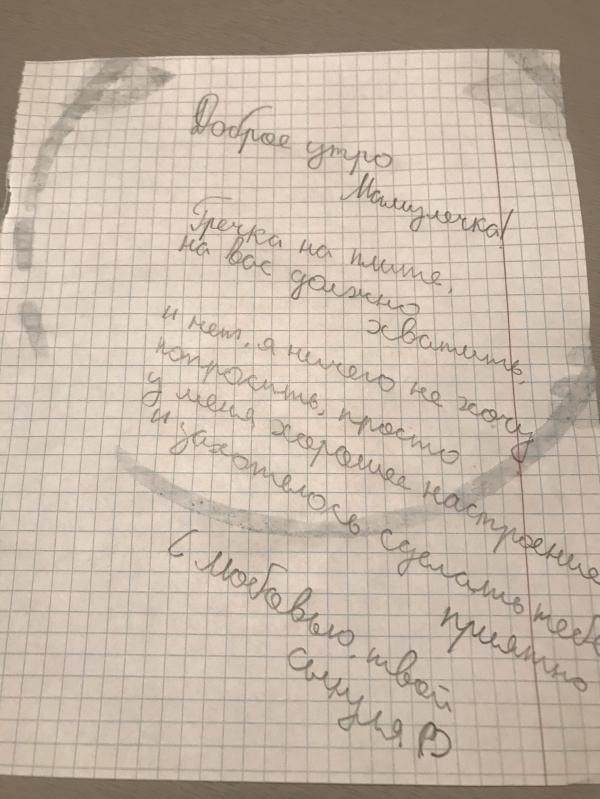 Доброе утро
Мамулечка!
Гречка на плите,
на вас должно
хватить,
и нет, я ничего не хочу
попросить, просто
у меня хорошее настроение
и захотелось сделать тебе
приятно
С любовью, твой
сынуля